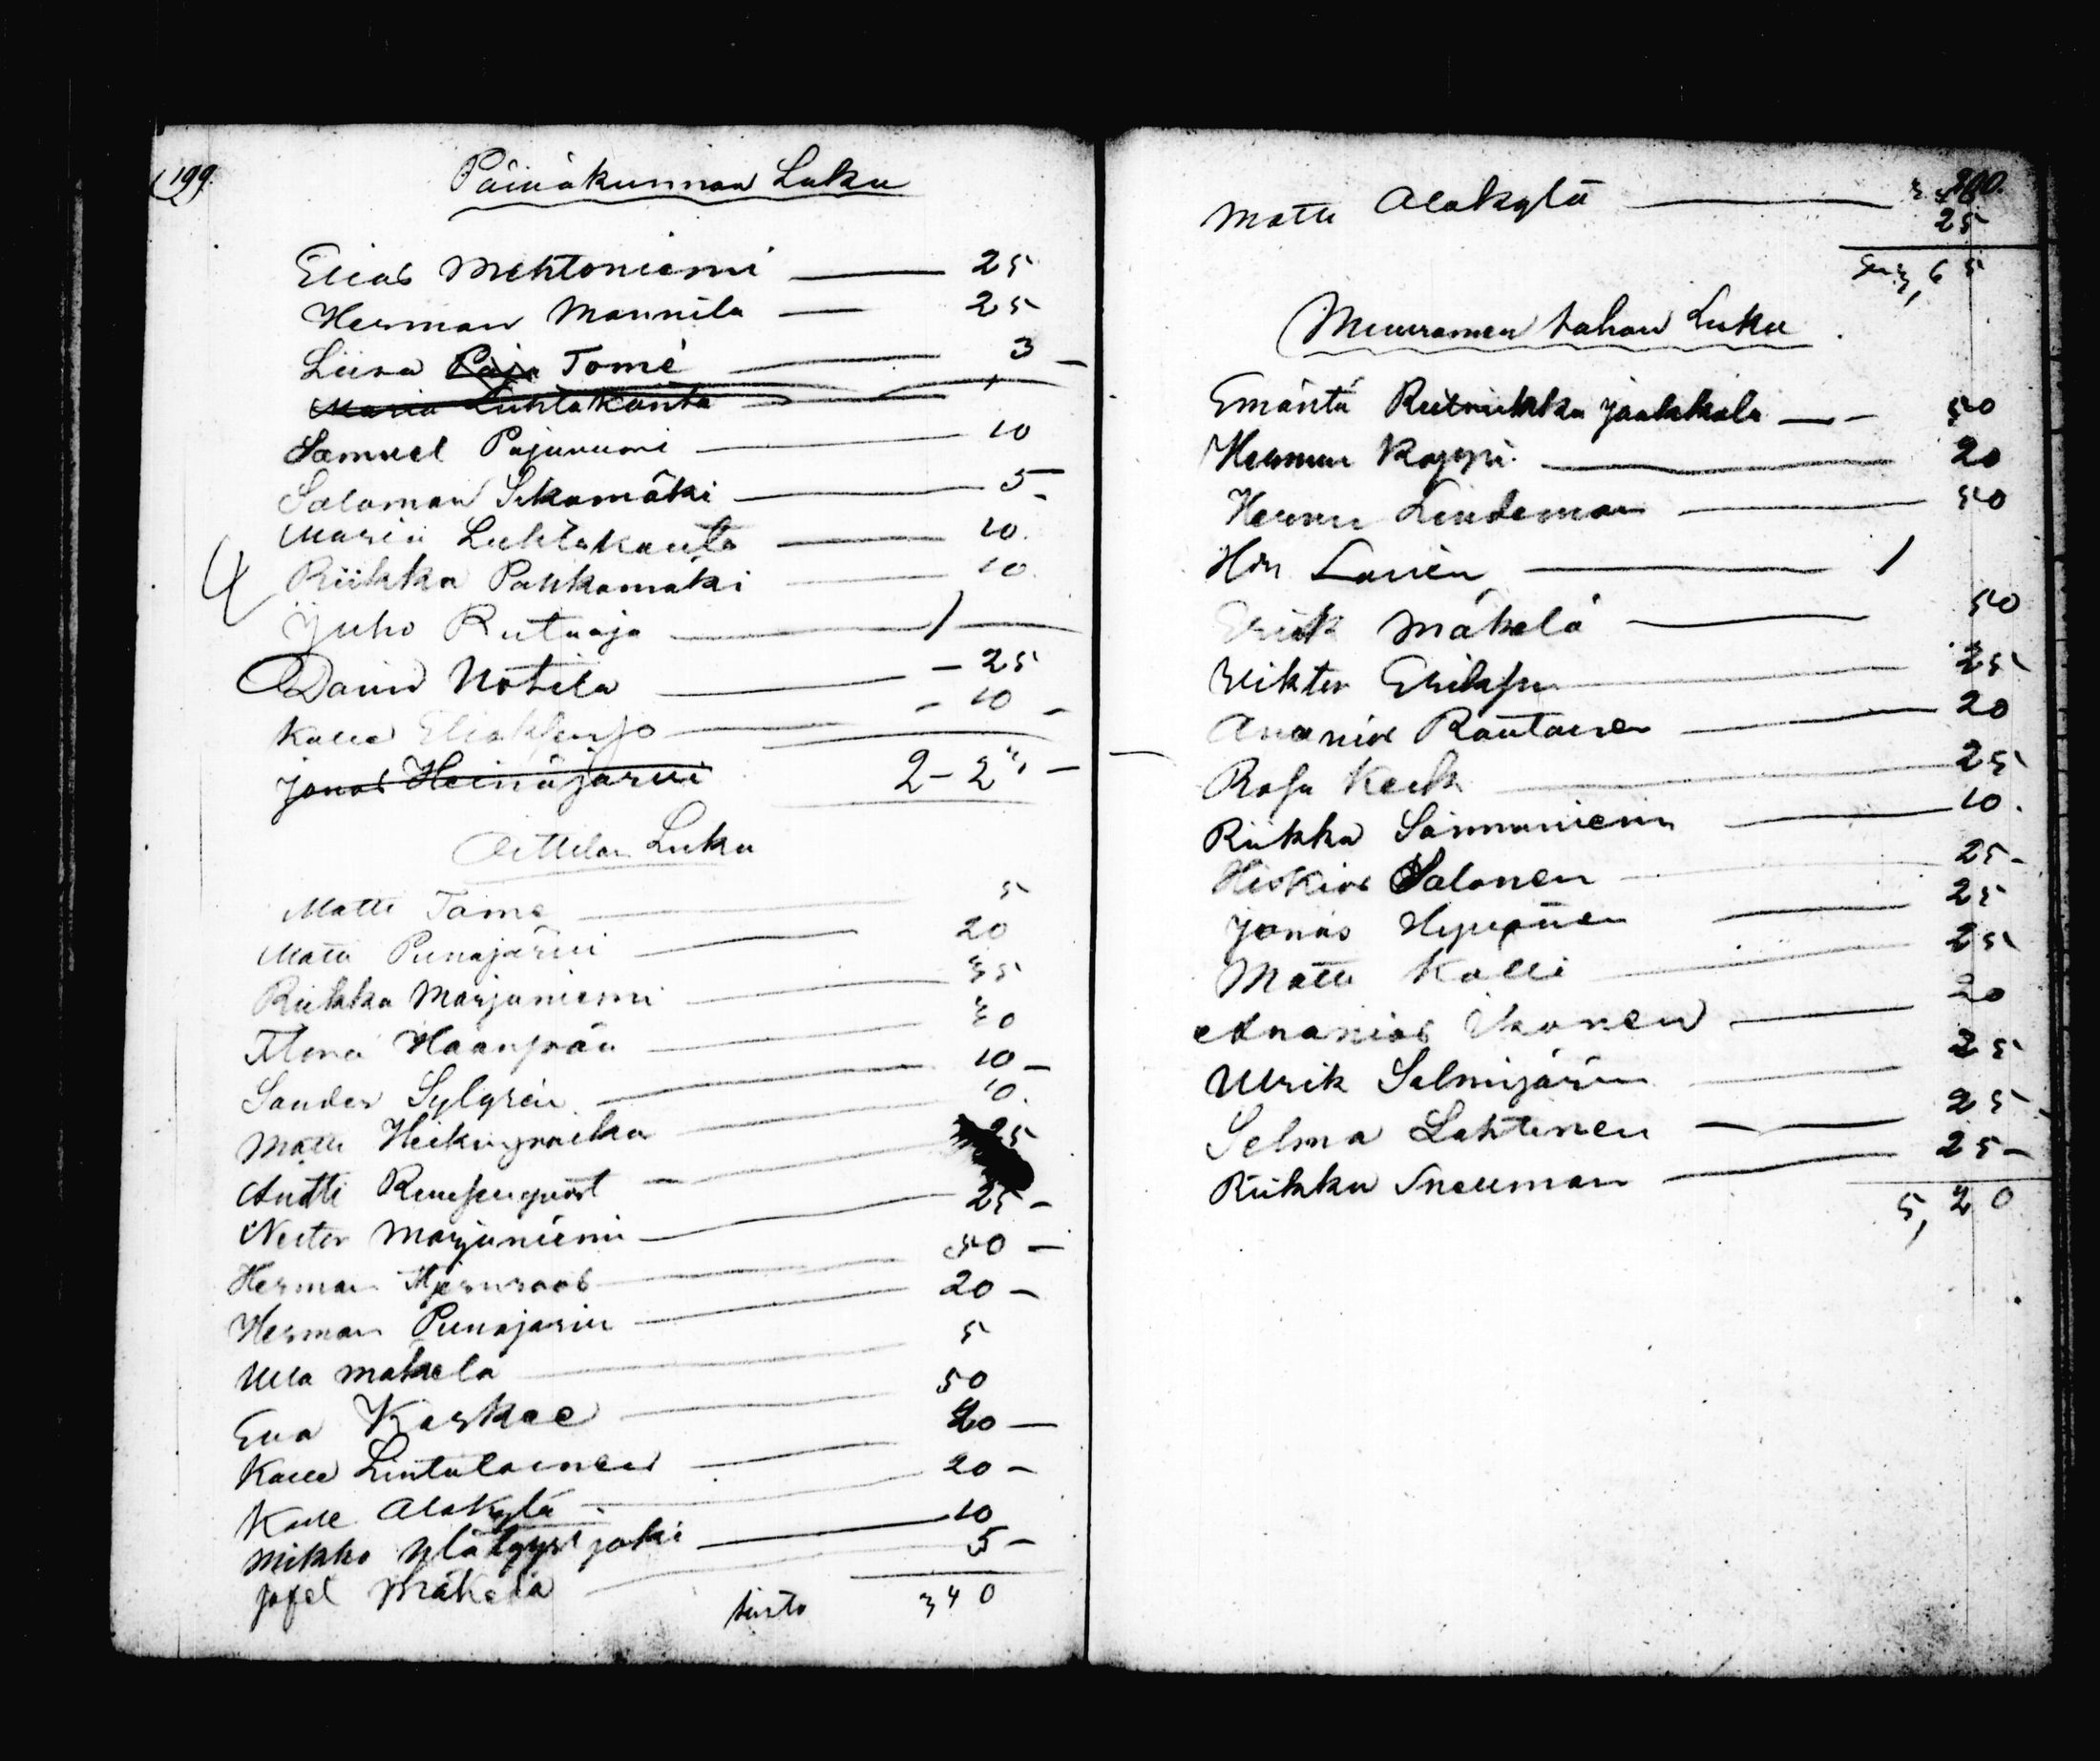 199.
Päinäkunnan Luku
Elias Mehtoniemi — 25
Herman Mannila — 25
Liisa Paja Tomé — 3 —
Maria Luhtakanta —
Samuel Pajunumi — 10
Saloman Sikamäki — 5 -
Maria Luhtakanta — 10.
Riikka Pahkamäki — 10.
Juho Rutaaja — 1 —
David Notila — 25
Kalle — 10 —
Jonas Heinäjärvi 2-2 —
Aittilan Luku
Matti Tome — 5
Matti Punajärvi — 20
Riikka Marjuniemi — 35
Haanpää — 30
Sander Sylgrén — 10 —
Matti — 10.
Antti — 25
Nestor Marjuniemi — 25 —
Herman — 50 —
Herman Punajärvi — 20 —
Ulla Makela — 5
Eva Koskee — 50
Kalle Lintulainen — 20 —
Kalle Alakylä — 20 —
Mikko — 10
Josef Mäkelä — 5 —
siirto 340
200.
3 40
Matti Alakylä — 25
3, 65
Muuramen tahan Luku
Emäntä Jaakkola — 50
Herman Koppi — 20
Herman Lindeman — 50
Hra — 1
Erik Mäkelä — 50
Viktor Erikson — 25
Ananias Rautanen — 20
Rosa Keck — 25
Riikka Sannaniemi — 10.
Heskias Salonen — 25 -
Jonas Hyvönen — 25
Matti Kalli — 25
Ananias Ikonen — 20
Ulrik Salmijärvi — 25
Selma Lahtinen — 25 -
Riikka Sneuman — 25 —
5, 20